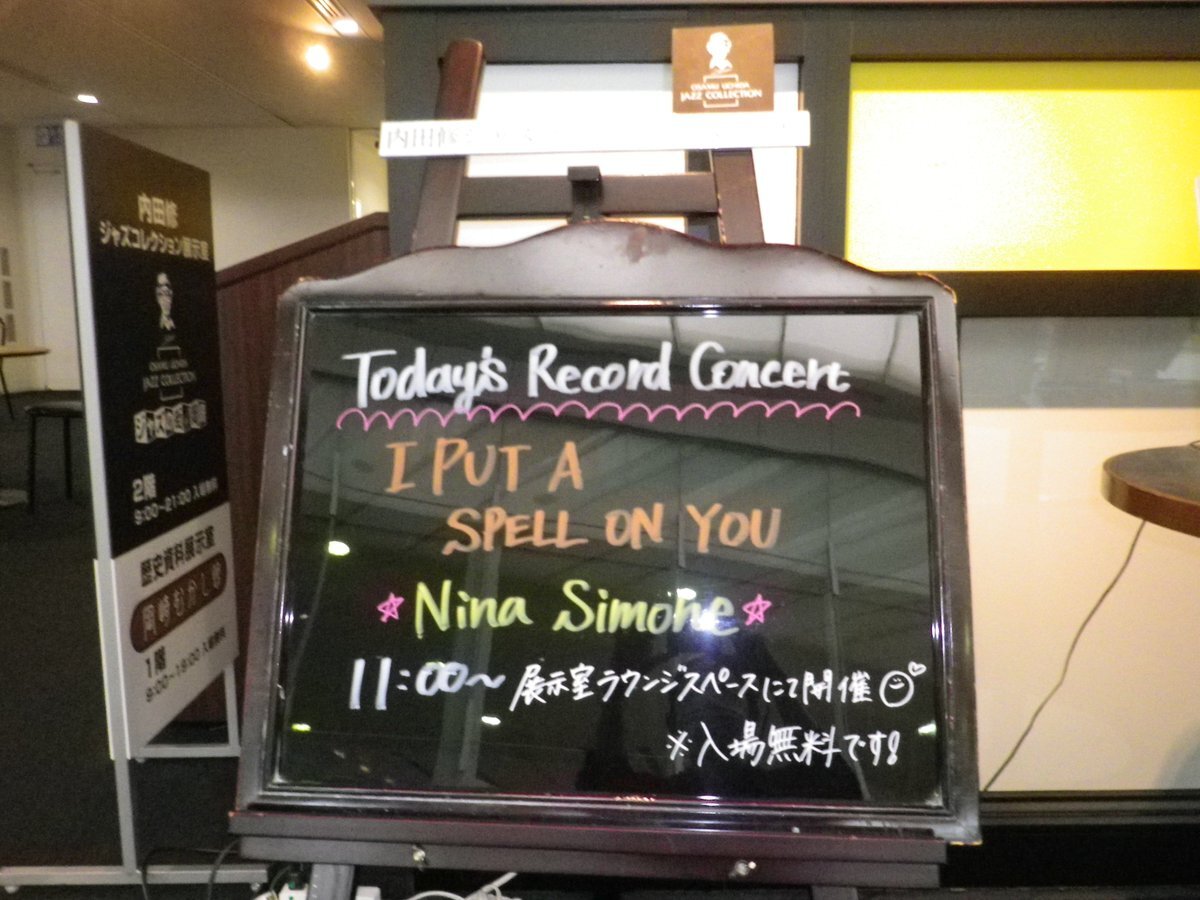 OSAMU UCHIDA
JAZZ COLLECTION
内田修
内田修
ジャズコレクション展示室
OSAMU UCHIDA
JAZZ COLLECTION
2階
9:00~21:00 入場無料
歴史資料展示室
岡崎むかし館
1階
9:00~19:00 入場無料
Today's Record Concert
I PUT A
SPELL ON YOU
☆ Nina Simone ☆
11:00~ 展示室ラウンジスペースにて開催
※入場無料です!